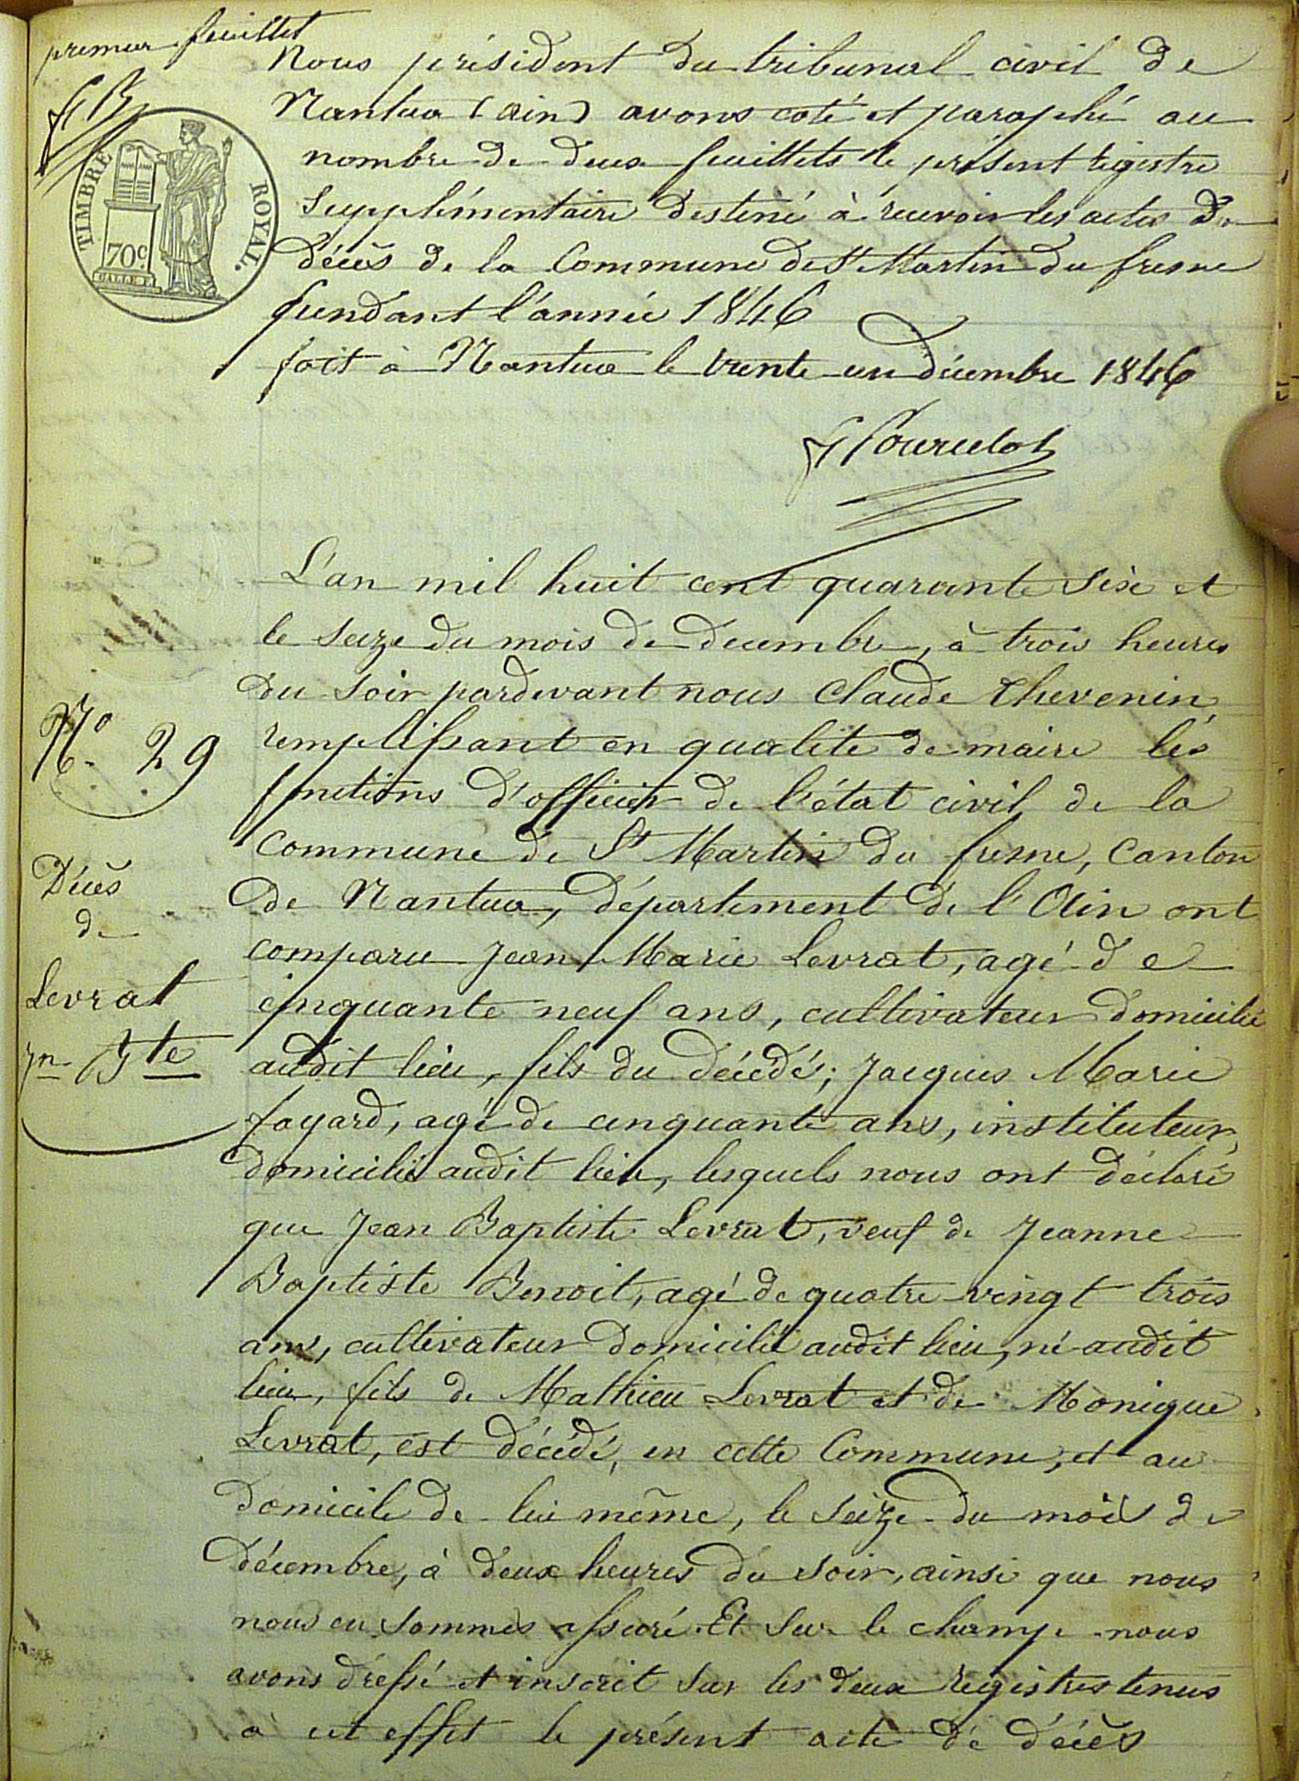 premier feuillet
TIMBRE ROYAL.
70c
Nous président du tribunal civil de
Nantua (ain) avons coté et paraphé au
nombre de deux feuillets le présent registre
supplémentaire destiné à recevoir les actes de
décès de la Commune de St Martin du fresne
pendant l'année 1846
fait à Nantua le trente un décembre 1846
L'an mil huit cent quarante six et
le seize du mois de decembre, à trois heures
du soir pardevant nous Claude Thevenin
remplissant en qualité de maire les
fonctions d'officier de l'état civil de la
Commune de St Martin du fresne, Canton
de Nantua, département de l'Ain ont
comparu Jean Marie Levrat, agé de
cinquante neuf ans, cultivateur domicilié
audit lieu, fils du décédé; Jacques Marie
fayard, agé de cinquante ans, instituteur,
domicilié audit lieu, lesquels nous ont déclaré
que Jean Baptiste Levrat, veuf de Jeanne
Baptiste Benoit, agé de quatre vingt trois
ans, cultivateur domicilié audit lieu, né audit
lieu, fils de Mathieu Levrat et de Monique
Levrat, est décédé, en cette Commune, et au
domicile de lui même, le seize du mois de
décembre, à deux heures du soir, ainsi que nous
nous en sommes assuré. Et sur le champ nous
avons dressé et inscrit sur les deux registres tenus
à cet effet le présent acte de décès
No 29
Décès
de
Levrat
Jn Bte